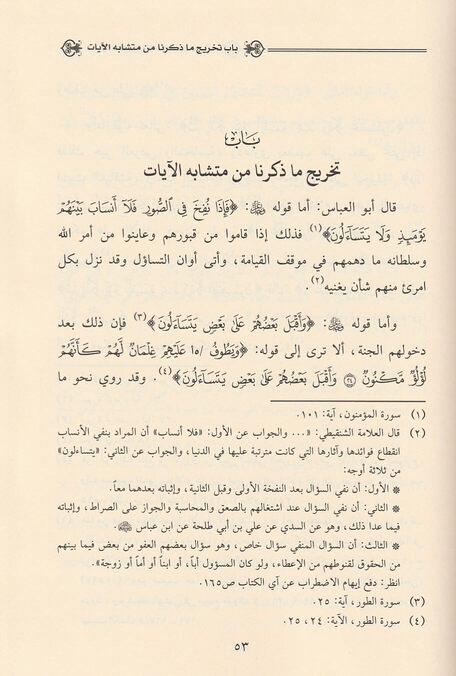 باب تخريج ما ذكرنا من متشابه الآيات
باب
تخريج ما ذكرنا من متشابه الآيات
قال أبو العباس: أما قوله ﷻ: ﴿فَإِذَا نُفِخَ فِي الصُّورِ فَلَا أَنسَابَ بَيْنَهُمْ
يَوْمَئِذٍ وَلَا يَتَسَاءَلُونَ﴾(١) فذلك إذا قاموا من قبورهم وعاينوا من أمر الله
وسلطانه ما دهمهم في موقف القيامة، وأتى أوان التساؤل وقد نزل بكل
امرئ منهم شأن يغنيه(٢).
وأما قوله ﷻ: ﴿وَأَقْبَلَ بَعْضُهُمْ عَلَىٰ بَعْضٍ يَتَسَاءَلُونَ﴾(٣) فإن ذلك بعد
دخولهم الجنة، ألا ترى إلى قوله: ﴿وَيَطُوفُ /١٥ عَلَيْهِمْ غِلْمَانٌ لَّهُمْ كَأَنَّهُمْ
لُؤْلُؤٌ مَّكْنُونٌ ۝٢٤ وَأَقْبَلَ بَعْضُهُمْ عَلَىٰ بَعْضٍ يَتَسَاءَلُونَ﴾(٤). وقد روي نحو ما
(١) سورة المؤمنون، آية: ١٠١.
(٢) قال العلامة الشنقيطي: «... والجواب عن الأول: «فلا أنساب» أن المراد بنفي الأنساب
انقطاع فوائدها وآثارها التي كانت مترتبة عليها في الدنيا، والجواب عن الثاني: «يتساءلون»
من ثلاثة أوجه:
* الأول: أن نفي السؤال بعد النفخة الأولى وقبل الثانية، وإثباته بعدهما معاً.
* الثاني: أن نفي السؤال عند اشتغالهم بالصعق والمحاسبة والجواز على الصراط، وإثباته
فيما عدا ذلك، وهو عن السدي عن علي بن أبي طلحة عن ابن عباس ﷺ.
* الثالث: أن السؤال المنفي سؤال خاص، وهو سؤال بعضهم العفو من بعض فيما بينهم
من الحقوق لقنوطهم من الإعطاء، ولو كان المسؤول أباً، أو ابناً أو أماً أو زوجة».
انظر: دفع إيهام الاضطراب عن آي الكتاب ص١٦٥.
(٣) سورة الطور، آية: ٢٥.
(٤) سورة الطور، الآية: ٢٤، ٢٥.
٥٣